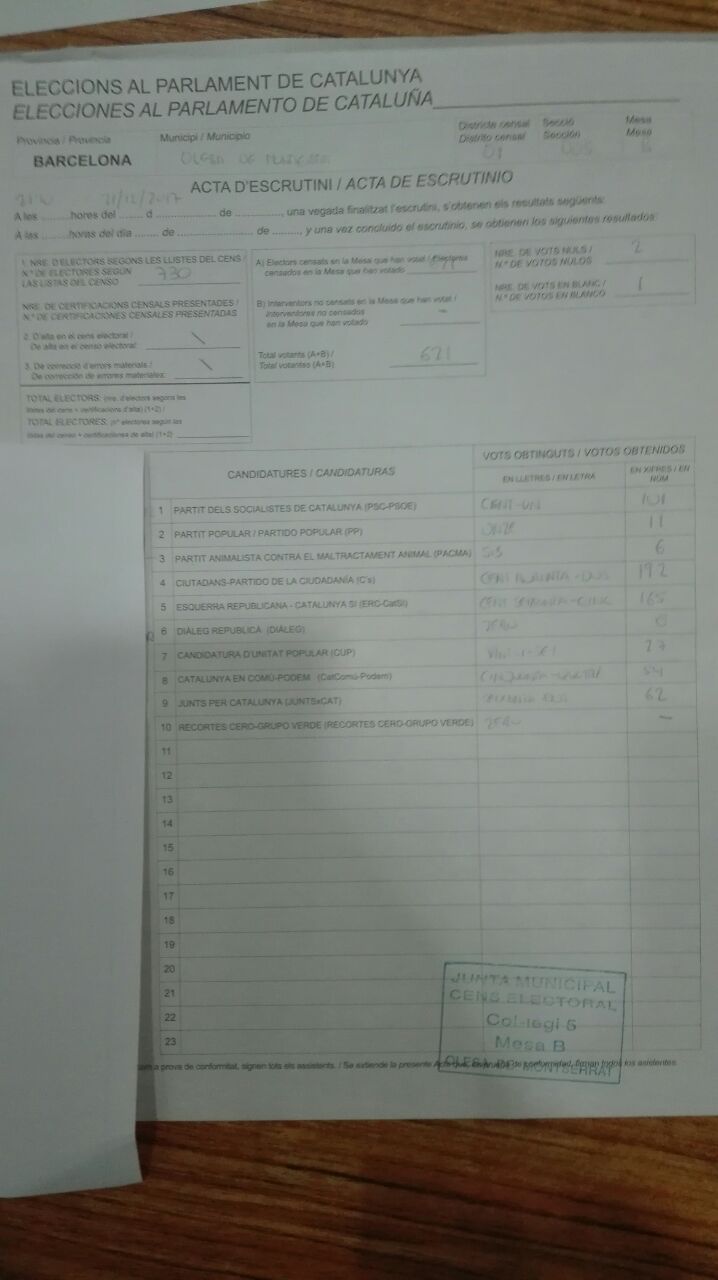 ELECCIONS AL PARLAMENT DE CATALUNYA
ELECCIONES AL PARLAMENTO DE CATALUÑA
Província / Provincia
Municipi / Municipio
Districte censal
Distrito censal
Secció
Sección
Mesa
Mesa
BARCELONA
OLESA DE
01
B
ACTA D'ESCRUTINI / ACTA DE ESCRUTINIO
21/12/2017
A les ........ hores del ....... d ................. de ............, una vegada finalitzat l'escrutini, s'obtenen els resultats següents:
A las ........ horas del día ....... de ................. de ........., y una vez concluido el escrutinio, se obtienen los siguientes resultados:
1. NRE. D'ELECTORS SEGONS LES LLISTES DEL CENS /
N.º DE ELECTORES SEGÚN
LAS LISTAS DEL CENSO
730
NRE. DE CERTIFICACIONS CENSALS PRESENTADES /
N.º DE CERTIFICACIONES CENSALES PRESENTADAS
2. D'alta en el cens electoral /
De alta en el censo electoral:
3. De correcció d'errors materials /
De corrección de errores materiales:
TOTAL ELECTORS: (nre. d'electors segons les
llistes del cens + certificacions d'alta) (1+2) /
TOTAL ELECTORES: (n.º electores según las
listas del censo + certificaciones de alta) (1+2)
A) Electors censats en la Mesa que han votat / Electores
censados en la Mesa que han votado
B) Interventors no censats en la Mesa que han votat /
Interventores no censados
en la Mesa que han votado
-
Total votants (A+B) /
Total votantes (A+B)
621
NRE. DE VOTS NULS /
N.º DE VOTOS NULOS
2
NRE. DE VOTS EN BLANC /
N.º DE VOTOS EN BLANCO
1
CANDIDATURES / CANDIDATURAS
VOTS OBTINGUTS / VOTOS OBTENIDOS
EN LLETRES / EN LETRA
EN XIFRES / EN NÚM
1 PARTIT DELS SOCIALISTES DE CATALUNYA (PSC-PSOE) CENT-UN 101
2 PARTIT POPULAR / PARTIDO POPULAR (PP) ONZE 11
3 PARTIT ANIMALISTA CONTRA EL MALTRACTAMENT ANIMAL (PACMA) SIS 6
4 CIUTADANS-PARTIDO DE LA CIUDADANÍA (C's) CENT 192
5 ESQUERRA REPUBLICANA - CATALUNYA SÍ (ERC-CatSí) CENT 165
6 DIÀLEG REPUBLICÀ (DIÀLEG) ZERO 0
7 CANDIDATURA D'UNITAT POPULAR (CUP) 27
8 CATALUNYA EN COMÚ-PODEM (CatComú-Podem) 54
9 JUNTS PER CATALUNYA (JUNTSxCAT) 62
10 RECORTES CERO-GRUPO VERDE (RECORTES CERO-GRUPO VERDE) ZERO -
11
12
13
14
15
16
17
18
19
20
21
22
23
JUNTA MUNICIPAL
CENS ELECTORAL
Col·legi 5
Mesa B
OLESA DE MONTSERRAT
a prova de conformitat, signen tots els assistents. / Se extiende la presente Acta que, de conformidad, firman todos los asistentes.